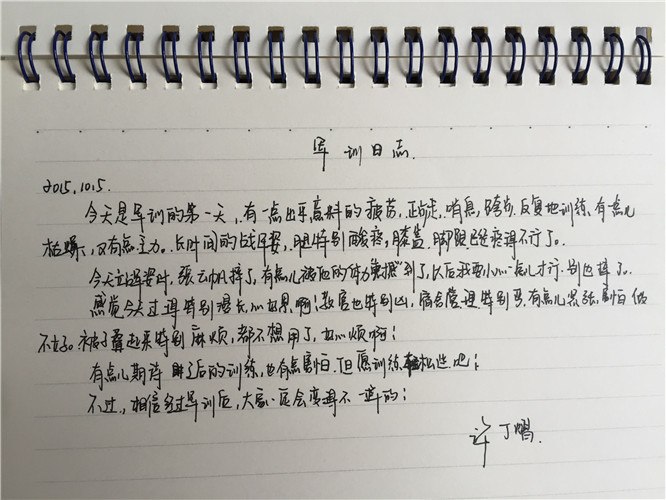 军训日志.
2015.10.5.
今天是军训的第一天,有一点出乎意料的疲劳,正步走,哨息,跨步.反复地训练,有一点儿
枯燥,又有点乏力。长时间的站军姿,腿特别酸疼,膝盖.脚跟已经疼得不行了。
今天站军姿时,张云帆摔了,有点儿被他的体力震撼到了,以后我要小心一点儿才行.别也摔了。
感觉今天过得特别漫长,心好累啊!教官也特别凶,宿舍管理特别严.有点儿紧张,害怕做
不好。被子叠起来特别麻烦,都不想用了,好心烦啊!
有点儿期待之后的训练,也有点害怕.但愿训练轻松些吧!
不过,相信经过军训后,大家一定会变得不一样的!
许丁